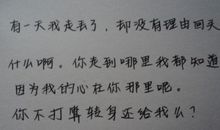 有一天我走丢了，却没有理由回头
什么啊。你走到哪里我都知道
因为我的心在你那里呢。
你不打算转身还给我么？